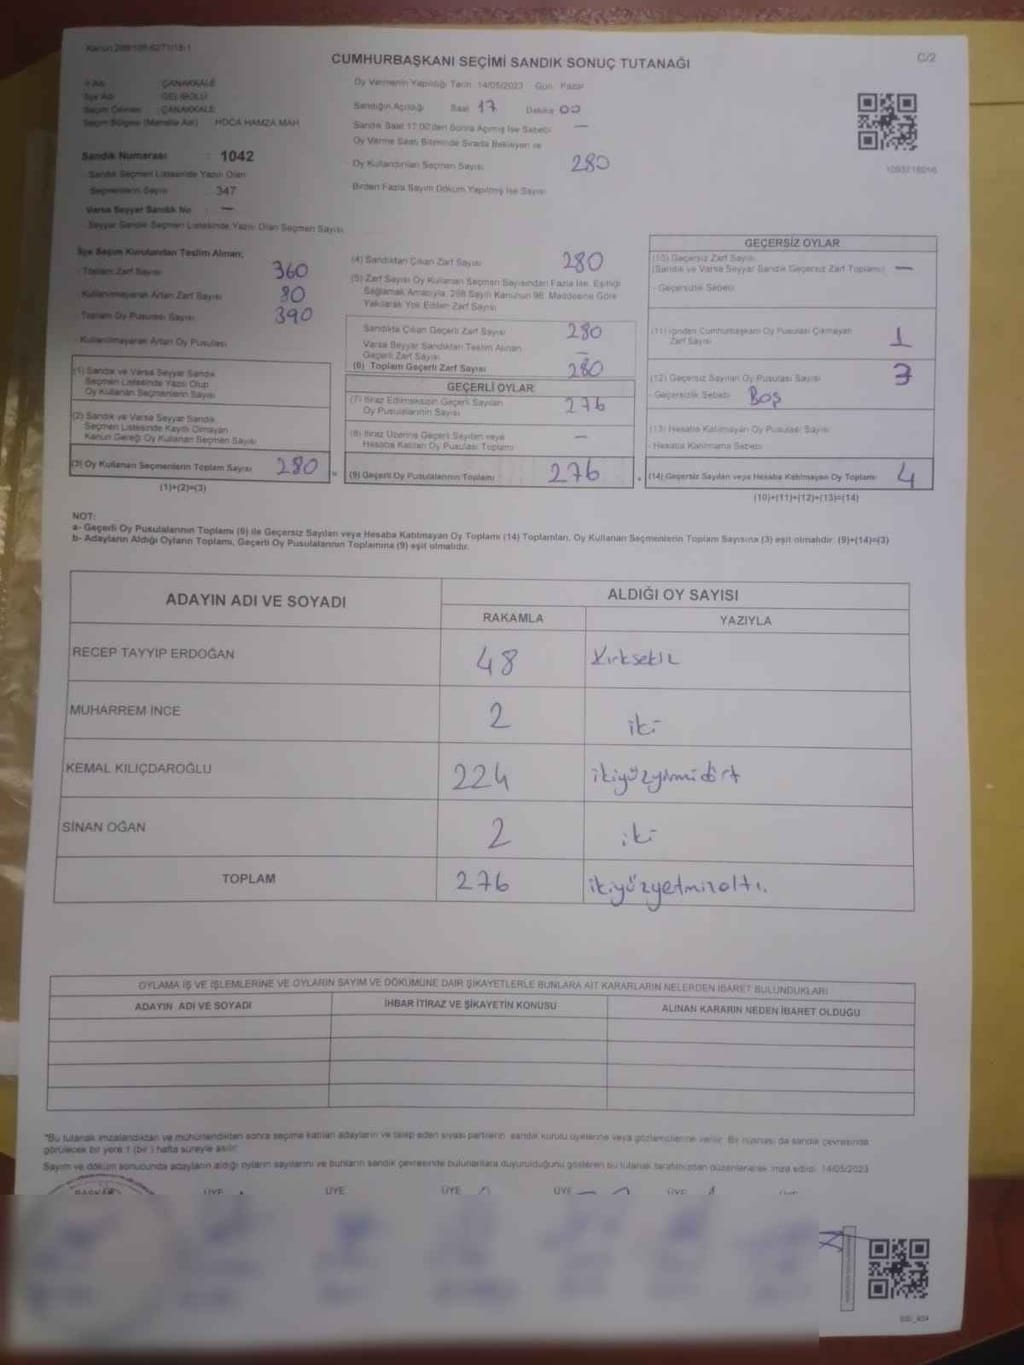 CUMHURBAŞKANI SEÇİMİ SANDIK SONUÇ TUTANAĞI
C/2
İl Adı : ÇANAKKALE
İlçe Adı : GELİBOLU
Seçim Çevresi : ÇANAKKALE
Seçim Bölgesi (Mahalle Adı) : HOCA HAMZA MAH
Oy Vermenin Yapıldığı Tarih 14/05/2023 Gün Pazar
Sandığın Açıldığı Saat 17 Dakika 00
Sandık Saat 17:00'den Sonra Açılmış İse Sebebi —
Oy Verme Saati Bitiminde Sırada Bekleyen ve
Oy Kullandırılan Seçmen Sayısı 280
Birden Fazla Sayım Döküm Yapılmış İse Sayısı
Sandık Numarası : 1042
Sandık Seçmen Listesinde Yazılı Olan
Seçmenlerin Sayısı : 347
Varsa Seyyar Sandık No : —
Seyyar Sandık Seçmen Listesinde Yazılı Olan Seçmen Sayısı
İlçe Seçim Kurulundan Teslim Alınan;
- Toplam Zarf Sayısı 360
- Kullanılmayarak Artan Zarf Sayısı 80
- Toplam Oy Pusulası Sayısı 390
- Kullanılmayarak Artan Oy Pusulası
(1) Sandık ve Varsa Seyyar Sandık
Seçmen Listesinde Yazılı Olup
Oy Kullanan Seçmenlerin Sayısı
(2) Sandık ve Varsa Seyyar Sandık
Seçmen Listesinde Kayıtlı Olmayan
Kanun Gereği Oy Kullanan Seçmen Sayısı
(3) Oy Kullanan Seçmenlerin Toplam Sayısı 280
(1)+(2)=(3)
(4) Sandıktan Çıkan Zarf Sayısı 280
(5) Zarf Sayısı Oy Kullanan Seçmen Sayısından Fazla İse, Eşitliği
Sağlamak Amacıyla, 298 Sayılı Kanunun 98. Maddesine Göre
Yakılarak Yok Edilen Zarf Sayısı
Sandıkta Çıkan Geçerli Zarf Sayısı 280
Varsa Seyyar Sandıktan Teslim Alınan
Geçerli Zarf Sayısı —
(6) Toplam Geçerli Zarf Sayısı 280
GEÇERLİ OYLAR
(7) İtiraz Edilmeksizin Geçerli Sayılan
Oy Pusulalarının Sayısı 276
(8) İtiraz Üzerine Geçerli Sayılan veya
Hesaba Katılan Oy Pusulası Toplamı —
(9) Geçerli Oy Pusulalarının Toplamı 276
GEÇERSİZ OYLAR
(10) Geçersiz Zarf Sayısı
(Sandık ve Varsa Seyyar Sandık Geçersiz Zarf Toplamı) —
- Geçersizlik Sebebi
(11) İçinden Cumhurbaşkanı Oy Pusulası Çıkmayan
Zarf Sayısı 1
(12) Geçersiz Sayılan Oy Pusulası Sayısı 3
- Geçersizlik Sebebi Boş
(13) Hesaba Katılmayan Oy Pusulası Sayısı
- Hesaba Katılmama Sebebi
(14) Geçersiz Sayılan veya Hesaba Katılmayan Oy Toplamı 4
(10)+(11)+(12)+(13)=(14)
NOT:
a- Geçerli Oy Pusulalarının Toplamı (9) ile Geçersiz Sayılan veya Hesaba Katılmayan Oy Toplamı (14) Toplamları, Oy Kullanan Seçmenlerin Toplam Sayısına (3) eşit olmalıdır. (9)+(14)=(3)
b- Adayların Aldığı Oyların Toplamı, Geçerli Oy Pusulalarının Toplamına (9) eşit olmalıdır.
ADAYIN ADI VE SOYADI
ALDIĞI OY SAYISI
RAKAMLA YAZIYLA
RECEP TAYYİP ERDOĞAN 48 Kırksekiz
MUHARREM İNCE 2 iki
KEMAL KILIÇDAROĞLU 224 ikiyüzyirmidört
SİNAN OĞAN 2 iki
TOPLAM 276 ikiyüzyetmişaltı.
OYLAMA İŞ VE İŞLEMLERİNE VE OYLARIN SAYIM VE DÖKÜMÜNE DAİR ŞİKAYETLERLE BUNLARA AİT KARARLARIN NELERDEN İBARET BULUNDUKLARI
ADAYIN ADI VE SOYADI İHBAR İTİRAZ VE ŞİKAYETİN KONUSU ALINAN KARARIN NEDEN İBARET OLDUĞU
*Bu tutanak imzalandıktan ve mühürlendikten sonra seçime katılan adayların ve talep eden siyasi partilerin sandık kurulu üyelerine veya gözlemcilerine verilir. Bir nüshası da sandık çevresinde
görülecek bir yere 1 (bir) hafta süreyle asılır.
Sayım ve döküm sonucunda adayların aldığı oyların sayılarını ve bunların sandık çevresinde bulunanlara duyurulduğunu gösteren bu tutanak tarafımızdan düzenlenerek imza edildi. 14/05/2023
BAŞKAN ÜYE ÜYE ÜYE ÜYE ÜYE